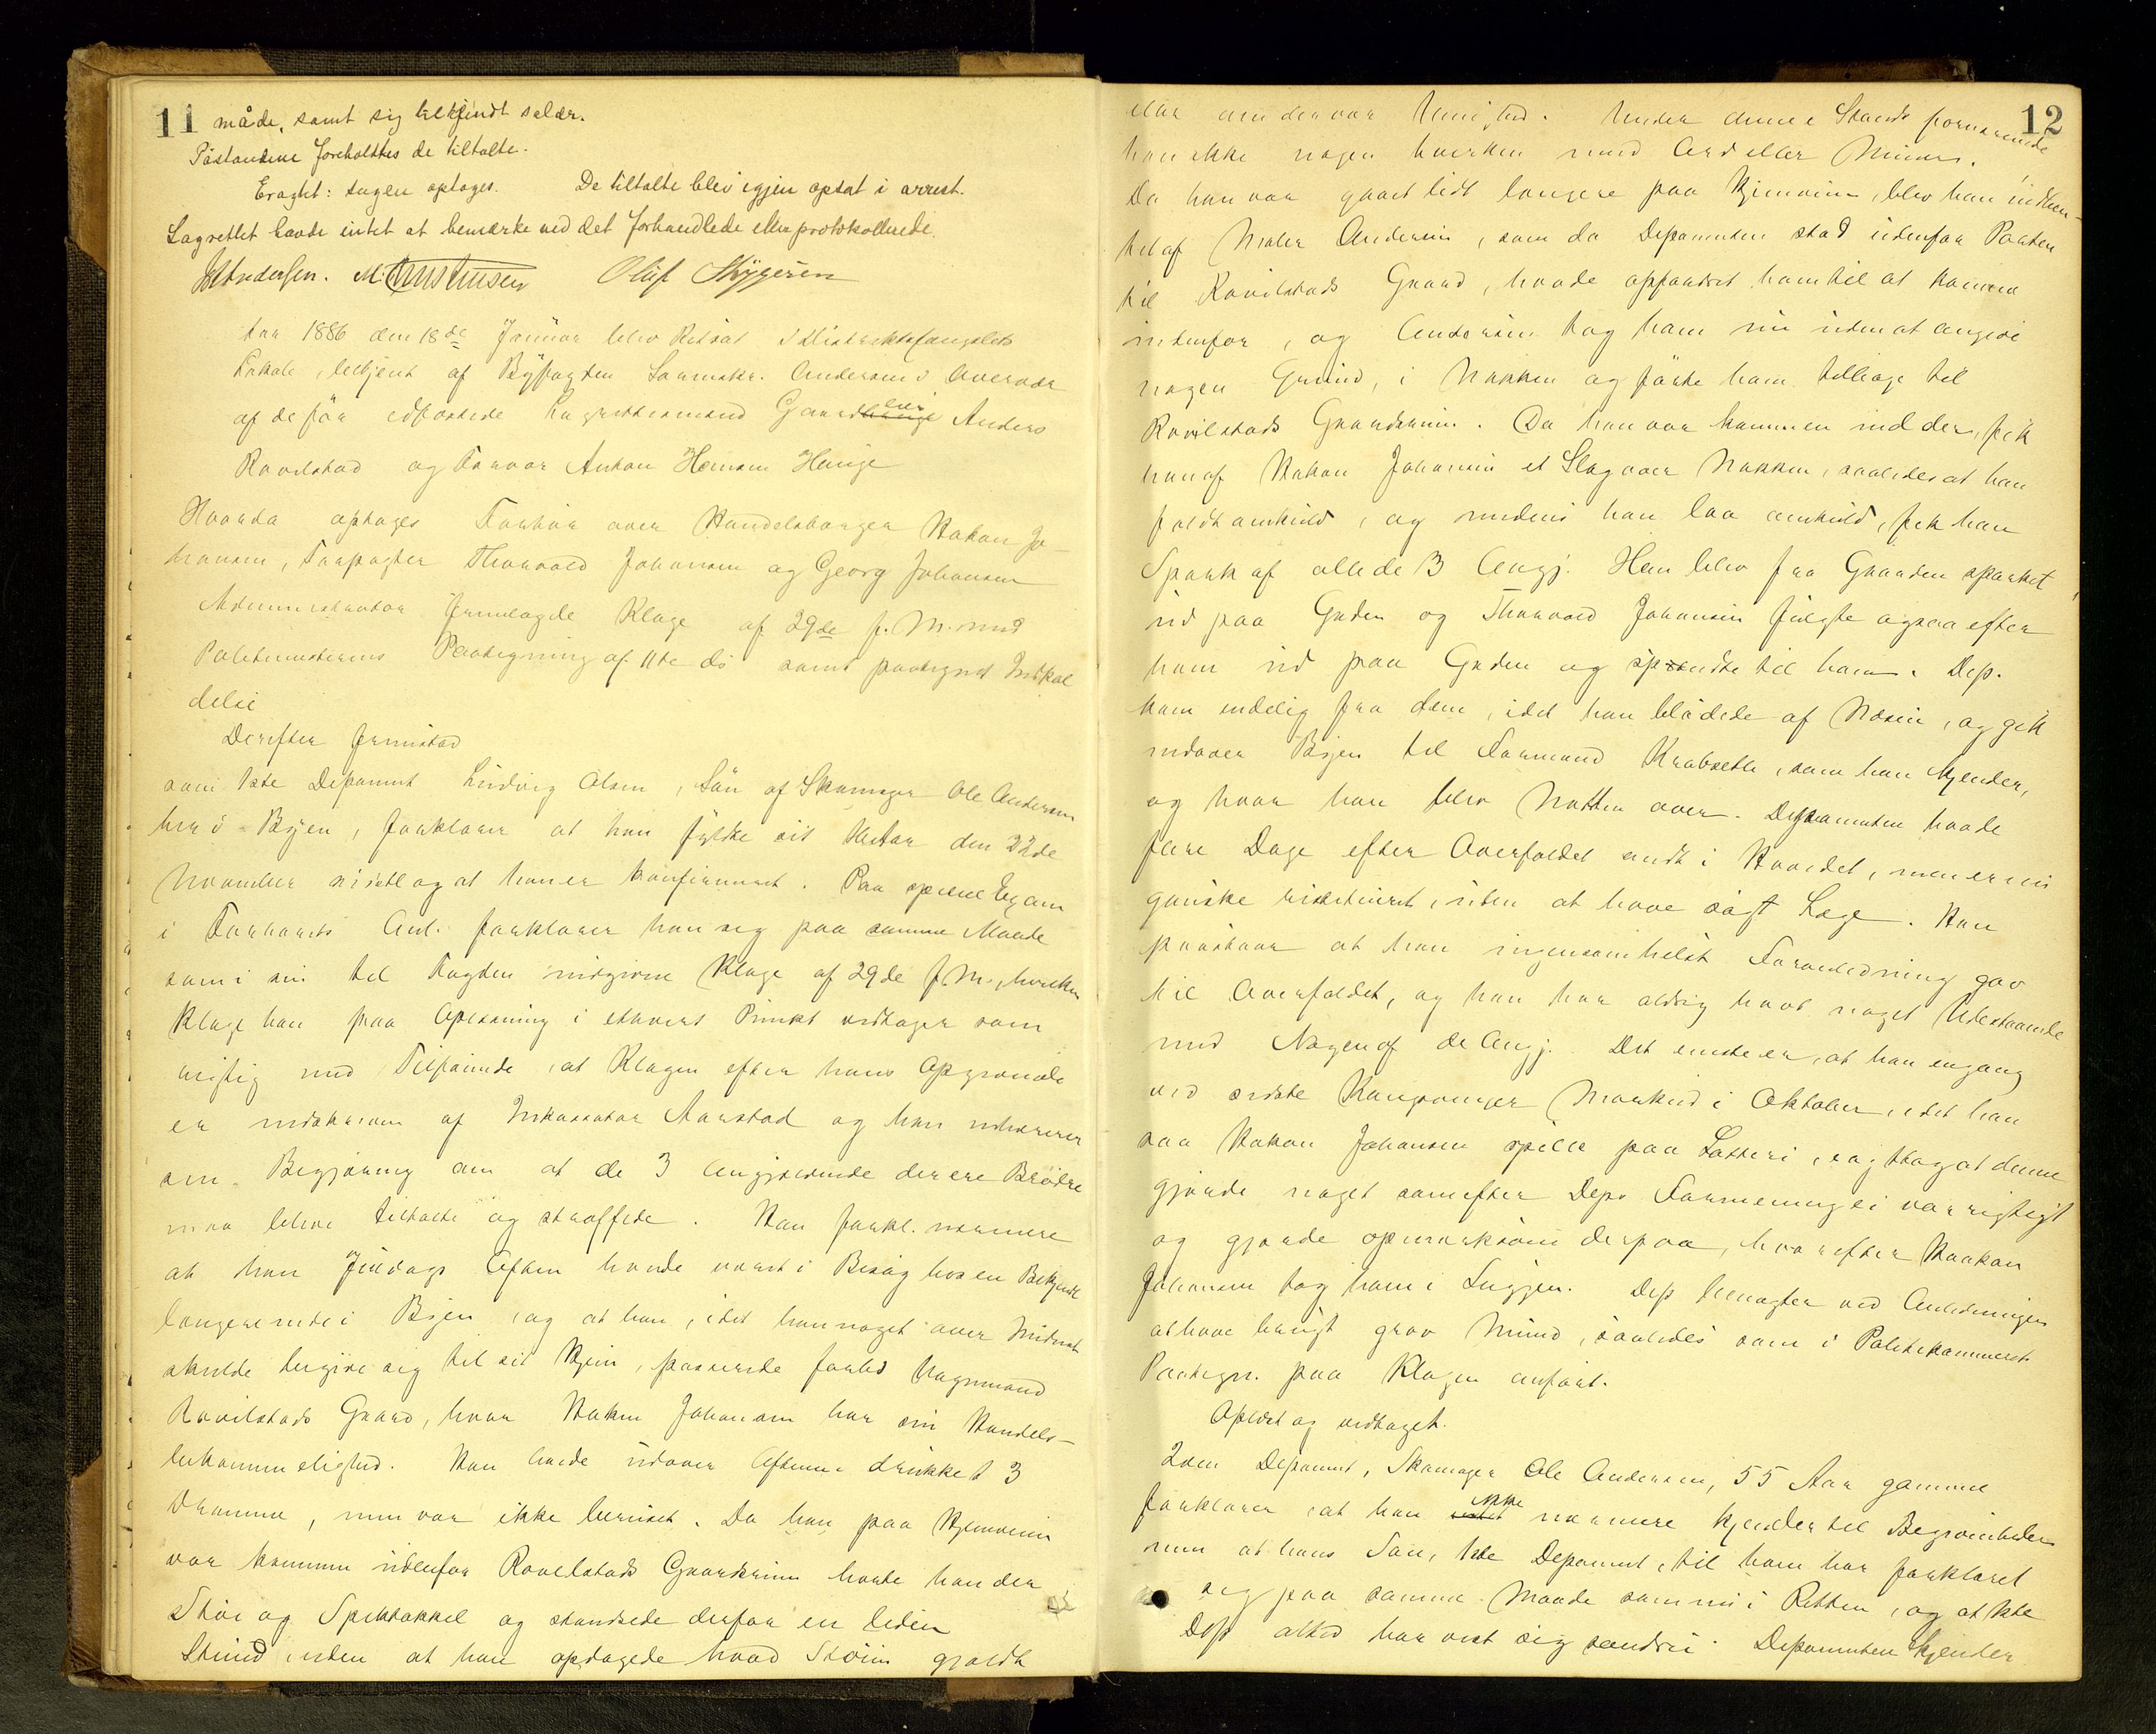 11
måde, samt sig tilkjendt salær.
Påstandene foreholdtes de tiltalte.
Eragtet: sagen optages. De tiltalte blev igjen opsat i arrest.
Lagrettet havde intet at bemærke ved det forhandlede eller protokollerede.
Andersen. M. Christensen Oluf Thygesen
Aar 1886 den 18de Januar blev Retsat i Distriktsfængslets
Lokale, betjent af Byfogden Sorenskr. Anderson i Overvær
af de før edfæstede Lagrettesmænd Gaardeier Anders
Ravilstad og Farver Anton Hansen Hauge
Hvorda optoges Forhør over Handelsborger Hakon Jo-
hansen, Forpagter Thorvald Johansen og Georg Johansen
Administrator fremlagde Klage af 29de f. M. med
Politimesterens Paategning af 11te ds samt paategnet Indkal
delse
Derefter fremstod
som 1ste Deponent Ludvig Olsen, Søn af Skomager Ole Andersen
her i Byen, forklarer at han fyldte sit Aar den 22de
November sidstl og at han er konfirmeret. Paa specielt Exam
i Forhørets Anl. forklarer han sig paa samme Maade
som i sin til Fogden indgivne Klage af 29de f. M., hvilken
Klage han paa Oplæsning i ethvert Punkt vedtager som
rigtig med Tilføiende, at Klagen efter hans Opgivende
er indskreven af Inkassator Aarstad og han nedlægger
sin Begjæring om at de 3 Angjældende der ere Brødre
maa blive tiltalte og straffede. Han forkl. nærmere
at han Juledags Aften havde været i Besøg hos en Bekjendt
længere inde i Byen, og at han, idet han noget over Midnat
skulde begive sig til sit Hjem, passerede forbi Vognmand
Ravilstads Gaard, hvor Hakon Johansen har sin Handels-
bekvemmelighed. Han havde udover Aftenen drukket 3
Dramme, men var ikke beruset. Da han paa Hjemveien
var kommen udenfor Ravilstads Gaardsrum hørte han der
Støi og Spektakkel og standsede derfor en liden
Stund, uden at han opdagede hvad Støien gjaldt
12
eller om der var Uenighed. Under denne Stands fornærmede
han ikke nogen hverken med Ord eller Miner.
Da han var gaaet lidt længere paa Hjemveien, blev han indhen-
tet af Maler Andersen, som da Deponenten stod udenfor Porten
til Ravilstads Gaard, havde opfordret ham til at komme
indenfor, og Andersen tog ham nu uden at angive
nogen Grund, i Nakken og førte ham tilbage til
Ravilstads Gaardsrum. Da han var kommen ind der, fik
han af Hakon Johansen et Slag over Nakken, saaledes at han
faldt omkuld, og medens han laa omkuld, fik han
Spark af alle de 3 Angj. Han blev fra Gaarden sparket
ud paa Gaden og Thorvald Johansen fulgte ogsaa efter
ham ud paa Gaden og spændte til ham. Dep.
kom endelig fra dem, idet han blødede af Næsen, og gik
indover Byen til Formand Krabseth, som han kjender,
og hvor han blev Natten over. Deponenten havde
flere Dage efter Overfaldet ondt i Hovedet, men er nu
ganske restitueret, uden at have søgt Læge. Han
paastaar at han ingensomhelst Foranledning gav
til Overfaldet, og han har aldrig havt noget Udestaaende
med Nogen af de Angj. Det eneste er, at han engang
ved sidste Kongsvinger Marked i Oktober, idet han
saa Hakon Johansen spille paa Lotteri, iagttog at denne
gjorde noget som efter Deps Formening ei var rigtigt
og gjorde opmærksom derpaa, hvorefter Haakon
Johansen tog ham i Luggen. Dep benægter ved Anledningen
at have brugt grov Mund, saaledes som i Politikammerets
Paategn. paa Klagen anført.
Oplæst og vedtaget.
2den Deponent, Skomager Ole Andersen, 55 Aar gammel
forklarer, at han ikke nærmere kjender til Begivenheden
men at hans Søn, 1ste Deponent, til ham har forklaret
sig paa samme Maade som nu i Retten, og at 1ste
Dep altid har vist sig sanddru. Deponenten kjender